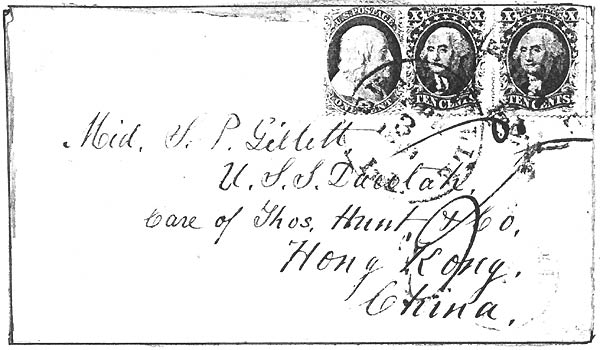 U.S. POSTAGE
ONE CENT
X X
TEN CENTS
X X
TEN CENTS
3
Mid. S. P. Gillett,
U. S. S. Dacotah,
Care of Thos. Hunt, & Co,
Hong Kong,
China.